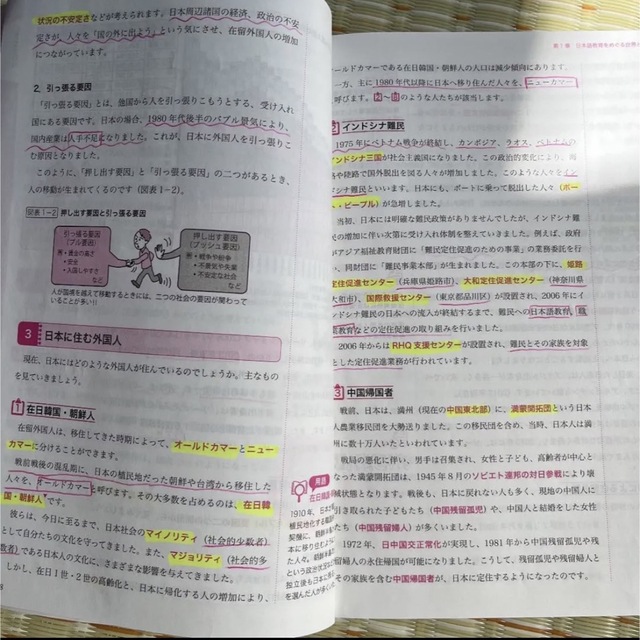 状況の不安定さなどが考えられます。日本周辺諸国の経済、政治の不安
定さが、人々を「国の外に出よう」という気にさせ、在留外国人の増加
につながっています。
2. 引っ張る要因
「引っ張る要因」とは、他国から人を引っ張りこもうとする、受け入れ
国にある要因です。日本の場合、1980年代後半のバブル景気により、
国内産業は人手不足になりました。これが、日本に外国人を引っ張りこ
む原因となりました。
このように、「押し出す要因」と「引っ張る要因」の二つがあるとき、
人の移動が生まれてくるのです(図表1-2)。
図表1-2 押し出す要因と引っ張る要因
引っ張る要因
(プル要因)
例・賃金の高さ
・安全
・入国しやすさ
など
押し出す要因
(プッシュ要因)
例・戦争や紛争
・不景気や失業
・不安定な社会
など
人が国境を越えて移動するときには、二つの社会の要因が関わって
いることが多い!!
3 日本に住む外国人
現在、日本にはどのような外国人が住んでいるのでしょうか。主なもの
を見ていきましょう。
1 在日韓国・朝鮮人
在留外国人は、移住してきた時期によって、オールドカマーとニュー
カマーに分けることができます。
戦前戦後の混乱期に、日本の植民地だった朝鮮や台湾から移住した
人々を、オールドカマーと呼びます。その大多数を占めるのは、在日韓
国・朝鮮人です。
彼らは、今日に至るまで、日本社会のマイノリティ(社会的少数者)
として自分たちの文化を守ってきました。また、マジョリティ(社会的多
数者)である日本人の文化に、さまざまな影響を与えてきました。
しかし、在日1世・2世の高齢化と、日本に帰化する人の増加により、
8
用語
在日韓国
1910年、日本
植民地化する韓国
契機に、朝鮮半島
本に移り住むよ
た人々。朝鮮半島
という政治状況
独立後も日本に
を選んだ人が多く
第1章 日本語教育をめぐる世界
ールドカマーである在日韓国・朝鮮人の人口は減少傾向にあります。
一方、主に1980年代以降に日本へ移り住んだ人々を、ニューカマー
呼びます。2〜8のような人たちが該当します。
2 インドシナ難民
1975年にベトナム戦争が終結し、カンボジア、ラオス、ベトナムの
インドシナ三国が社会主義国になりました。この政治的変化により、
や陸路で国外脱出を図る人々が増加しました。このような人々をイン
ドシナ難民といいます。日本にも、ボートに乗って脱出した人々(ボー
ト・ピープル)が急増しました。
当初、日本には明確な難民政策がありませんでしたが、インドシナ難
民の増加に伴い次第に受け入れ体制を整えていきました。例えば、政府
がアジア福祉教育財団に「難民定住促進のための事業」の業務委託を行
い、同財団に「難民事業本部」が生まれました。この本部の下に、姫路
定住促進センター(兵庫県姫路市)、大和定住促進センター(神奈川県
大和市)、国際救援センター(東京都品川区)が設置され、2006年にイ
ドシナ難民の日本への流入が終結するまで、難民への日本語教育、職
業教育などの定住促進の取り組みを行いました。
2006年からはRHQ支援センターが設置され、難民とその家族を対象
とした定住促進業務が行われています。
3 中国帰国者
戦前、日本は、満州(現在の中国東北部)に、満蒙開拓団という日本
人農業移民団を大勢送りました。この移民団を含め、当時、日本人は満
州に数十万人いたといわれています。
戦局の悪化に伴い、男手は召集され、女性と子ども、高齢者が中心と
なった満蒙開拓団は、1945年8月のソビエト連邦の対日参戦により壊
滅状態となります。戦後も、日本に戻れない人も多く、現地の中国人に
引き取られた子どもたち(中国残留孤児)や、中国人と結婚をした女性
たち(中国残留婦人)が多くいました。
1972年、日中国交正常化が実現し、1981年から中国残留孤児や残
留婦人の永住帰国が可能になりました。こうして、残留孤児や残留婦人と
その家族を含む中国帰国者が、日本に定住するようになったのです。